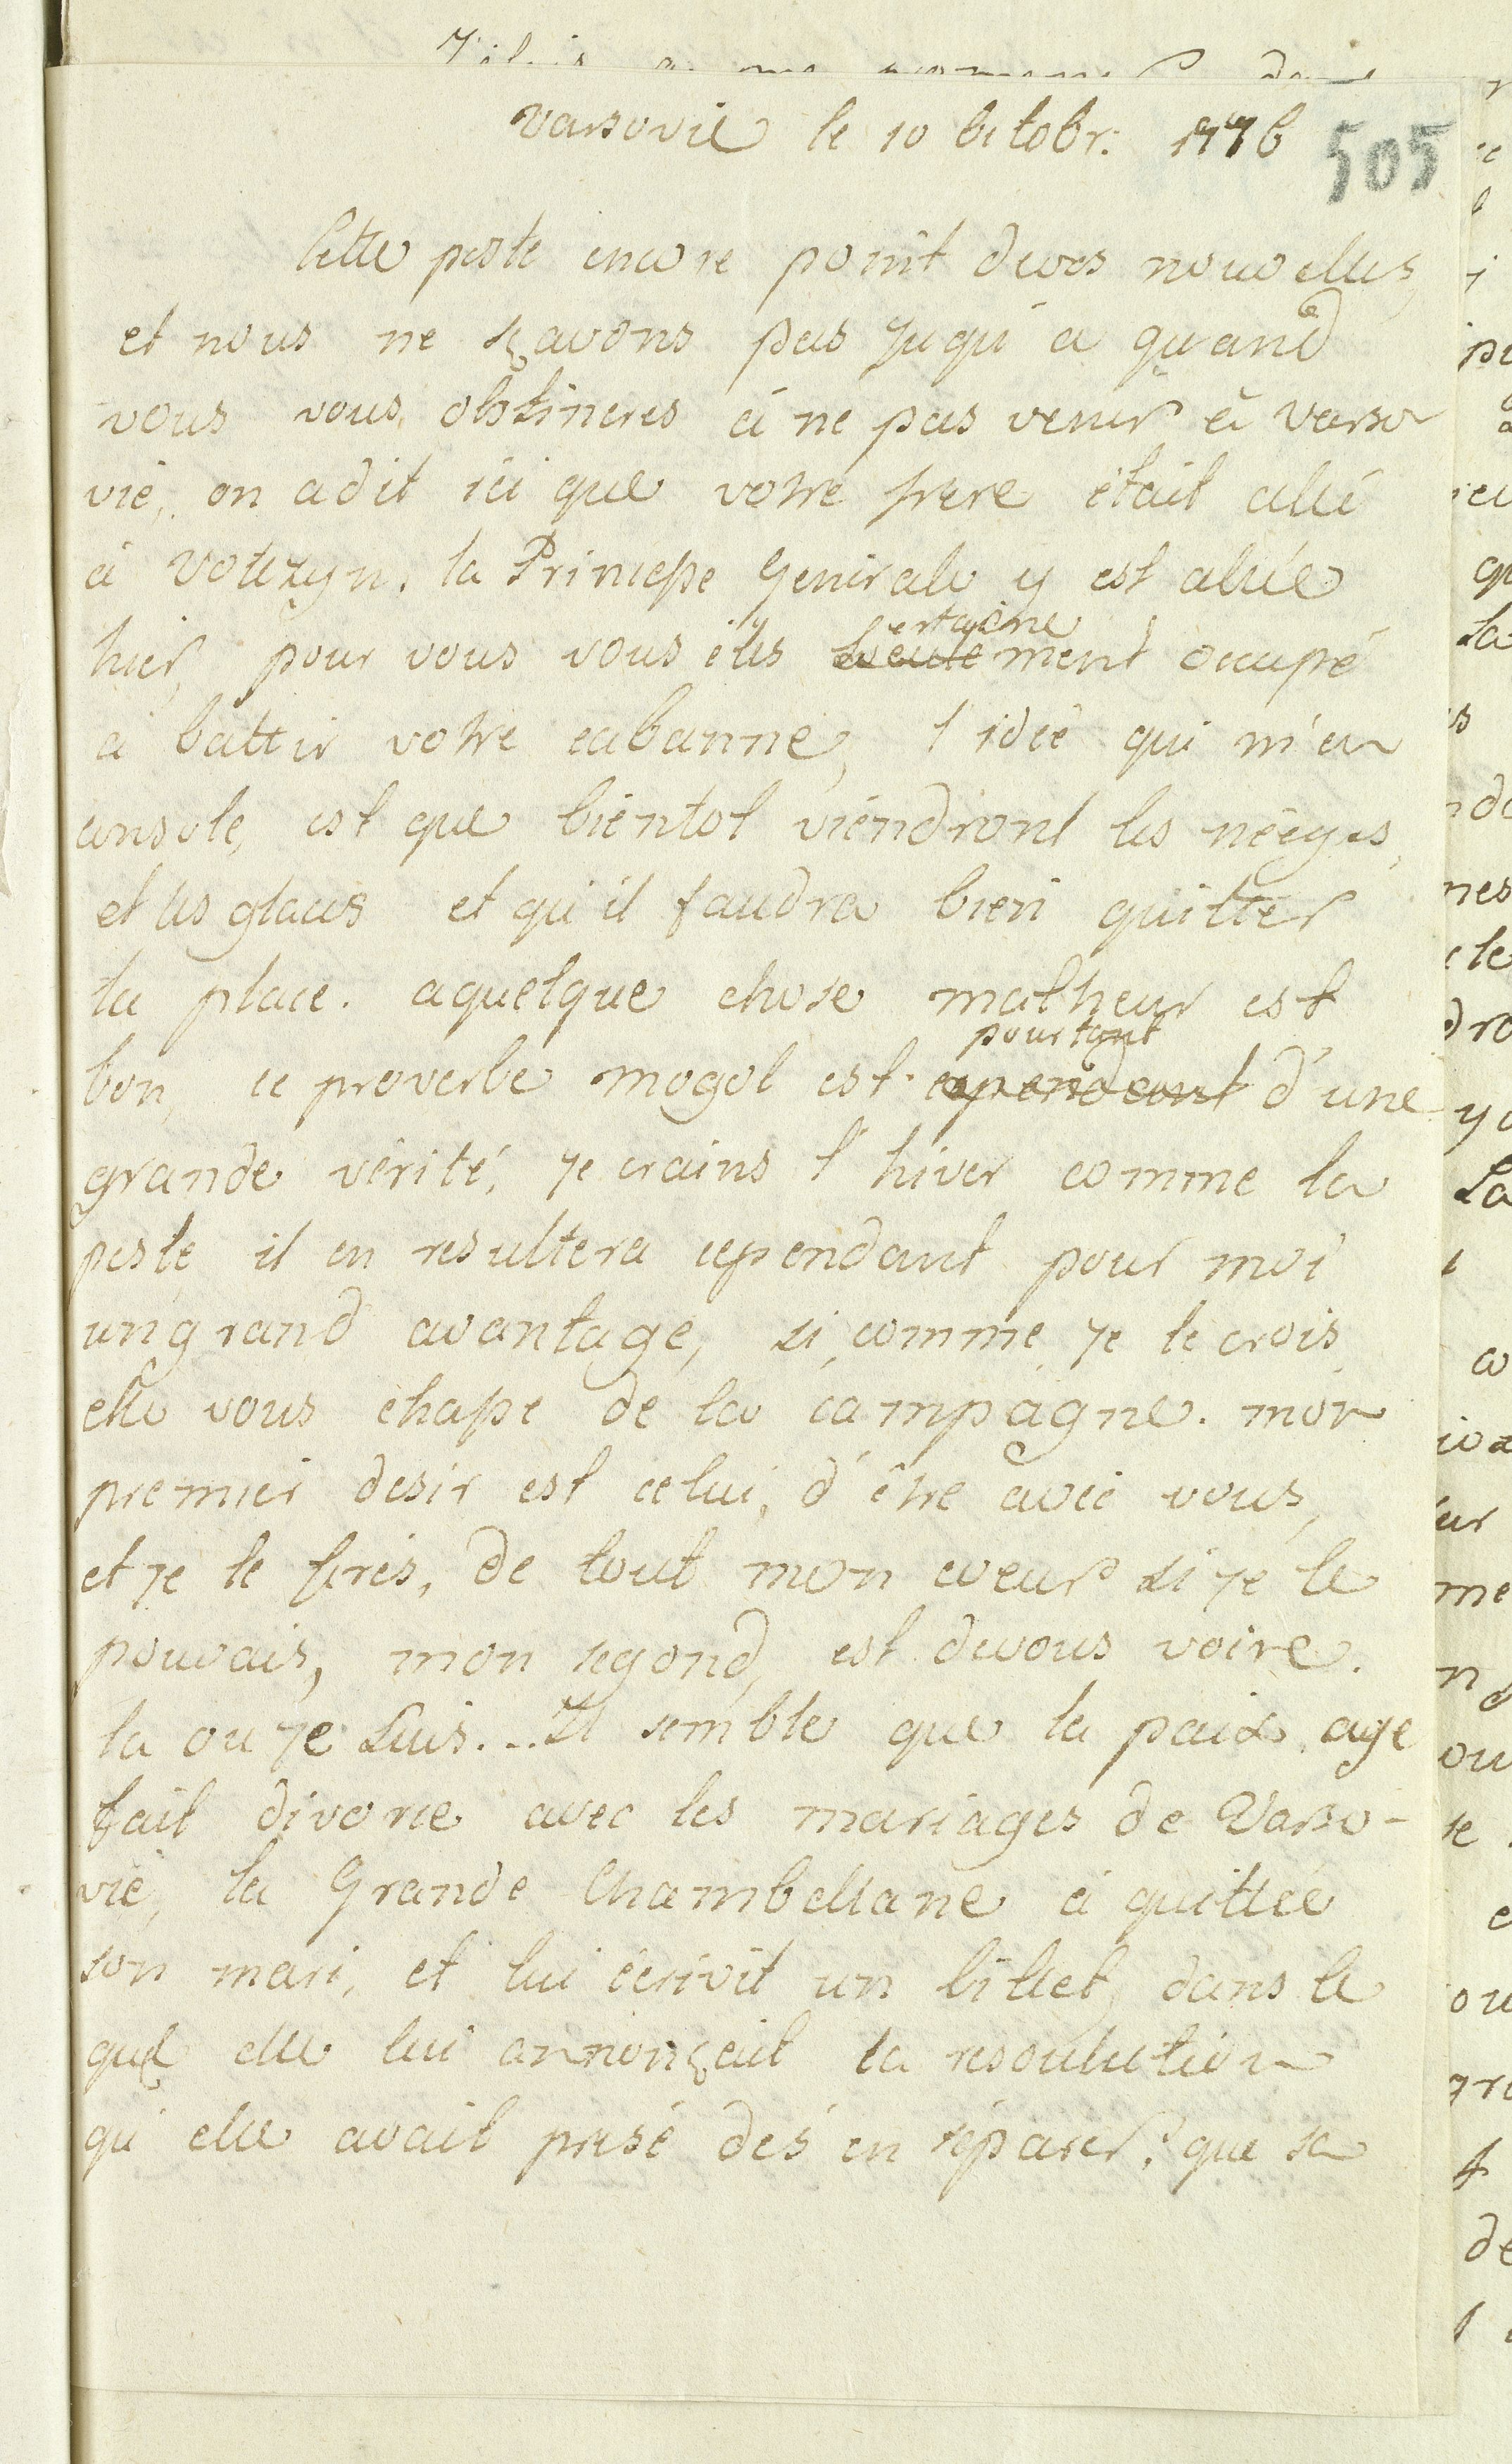 Varsovie le 10 Octobr: 1776 505
Cette poste encore point de vos nouvelles,
et nous ne sçavons pas juqu'a quand
vous vous obstineres à ne pas venir à Varso
vie, on a dit ici que votre frere était allé
à Votczyn, la Princesse Generale y est allée
hier, pour vous vous êtes certainement occupé
à battir votre cabanne, l'idée qui m'en
console, est que bientot viendront les nèeges,
et les glaces et qu'il faudra bien quitter
la place. a quelque chose malheur est
bon, ce proverbe mogol est cependant pourtant d'une
grande vérité, je crains l'hiver comme la
peste, il en resultera cependant pour moi
un grand avantage, si, comme je le crois
elle vous chasse de la campagne. mon
premier desir est celui, d'être avec vous,
et je le feres, de tout mon coeur si je le
pouvais, mon segond, est de vous voire
la ou je suis... Il semble que la paix aye
fait divorce avec les mariages de Varso-
vie, la Grande Chambellane à quittée
son mari, et lui écrivit un billet, dans le
quel elle lui annonçait la resoulution
qu'elle avait prise dés en séparer, que sa